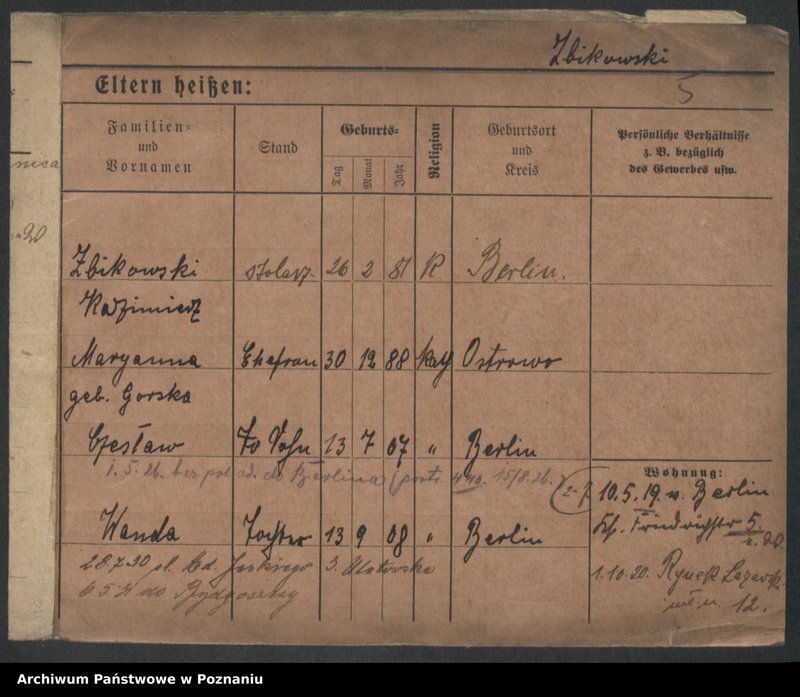 Zbikowski
5
Eltern heißen:
Familien- und Vornamen
Stand
Geburts-
Tag
Monat
Jahr
Religion
Geburtsort und Kreis
Persönliche Verhältnisse z. B. bezüglich des Gewerbes usw.
Zbikowski stolarz 26 2 81 K Berlin.
Kazimierz
Maryanna Ehefrau 30 12 88 Kath Ostrowo
geb. Gorska
Czesław Sohn 13 7 07 " Berlin
1. 5. 26. bez pol. od. do Berlina 15/8.26.
Wohnung:
10.5.19. v. Berlin
Wanda Tochter 13 9 08 " Berlin
Friedrichstr 5.
28.7.30
do Bydgoszczy
1.10.20. Rynek Lazarski
12.
nica
20
Archiwum Państwowe w Poznaniu